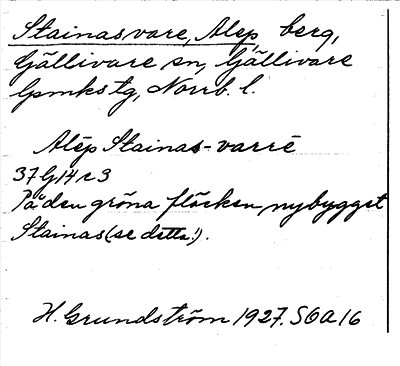 Stainasvare, Alep, berg,
Gällivare sn, Gällivare
lpmkstg, Norrb. l.
Alēp Stainas-varrē
37 G 14 c 3
På den gröna fläcken nybygget
Stainas (se detta!).
H. Grundström 1927. SOA 16